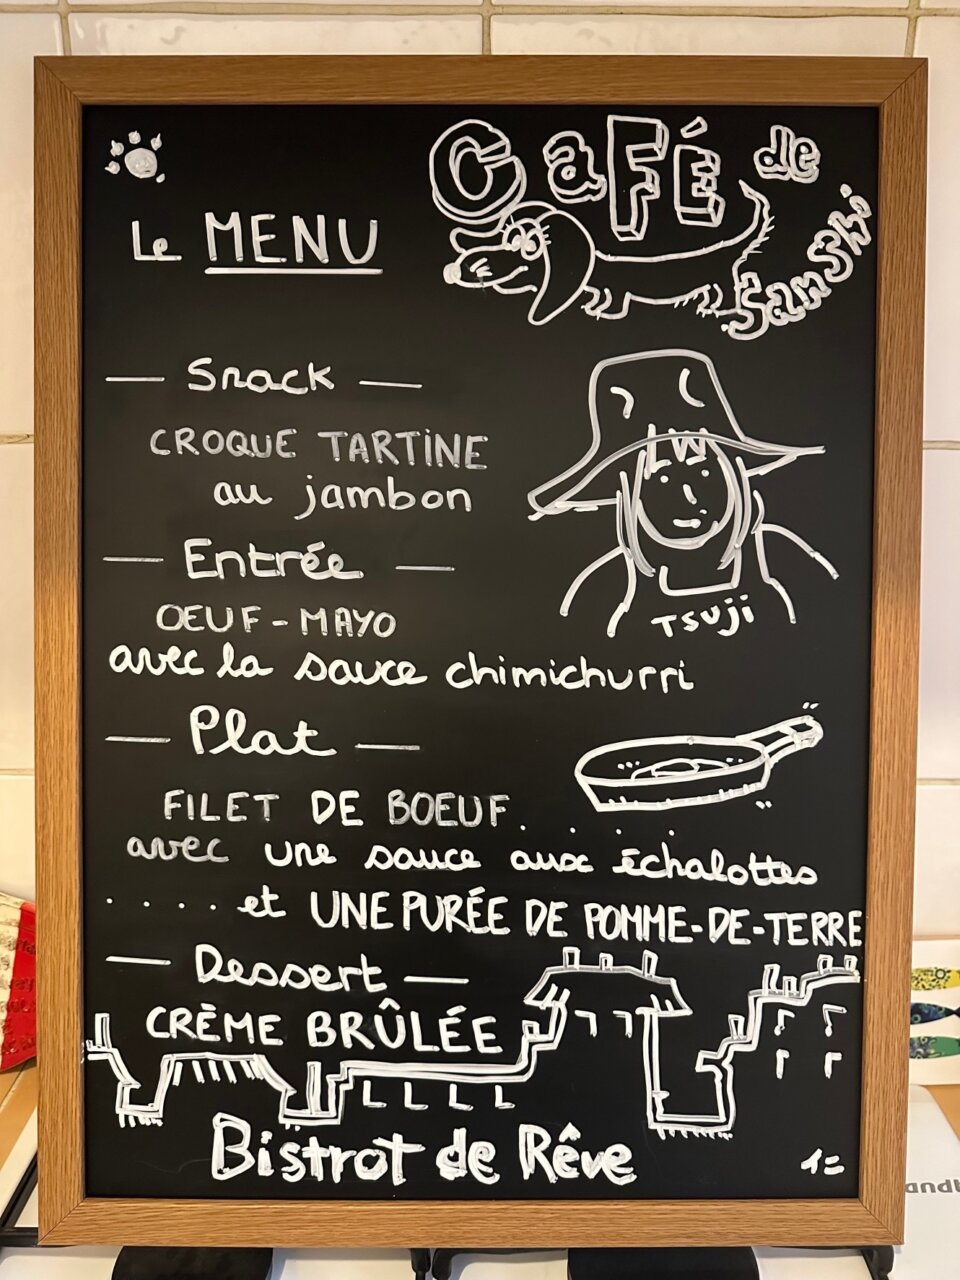 CaFÉ de
Sanshi
Le MENU
Snack
CROQUE TARTINE
au jambon
Entrée
OEUF-MAYO
TSUJI
avec la sauce chimichurri
Plat
FILET DE BOEUF
avec une sauce aux échalottes
.... et UNE PURÉE DE POMME-DE-TERRE
Dessert
CRÈME BRÛLÉE
Bistrot de Rêve